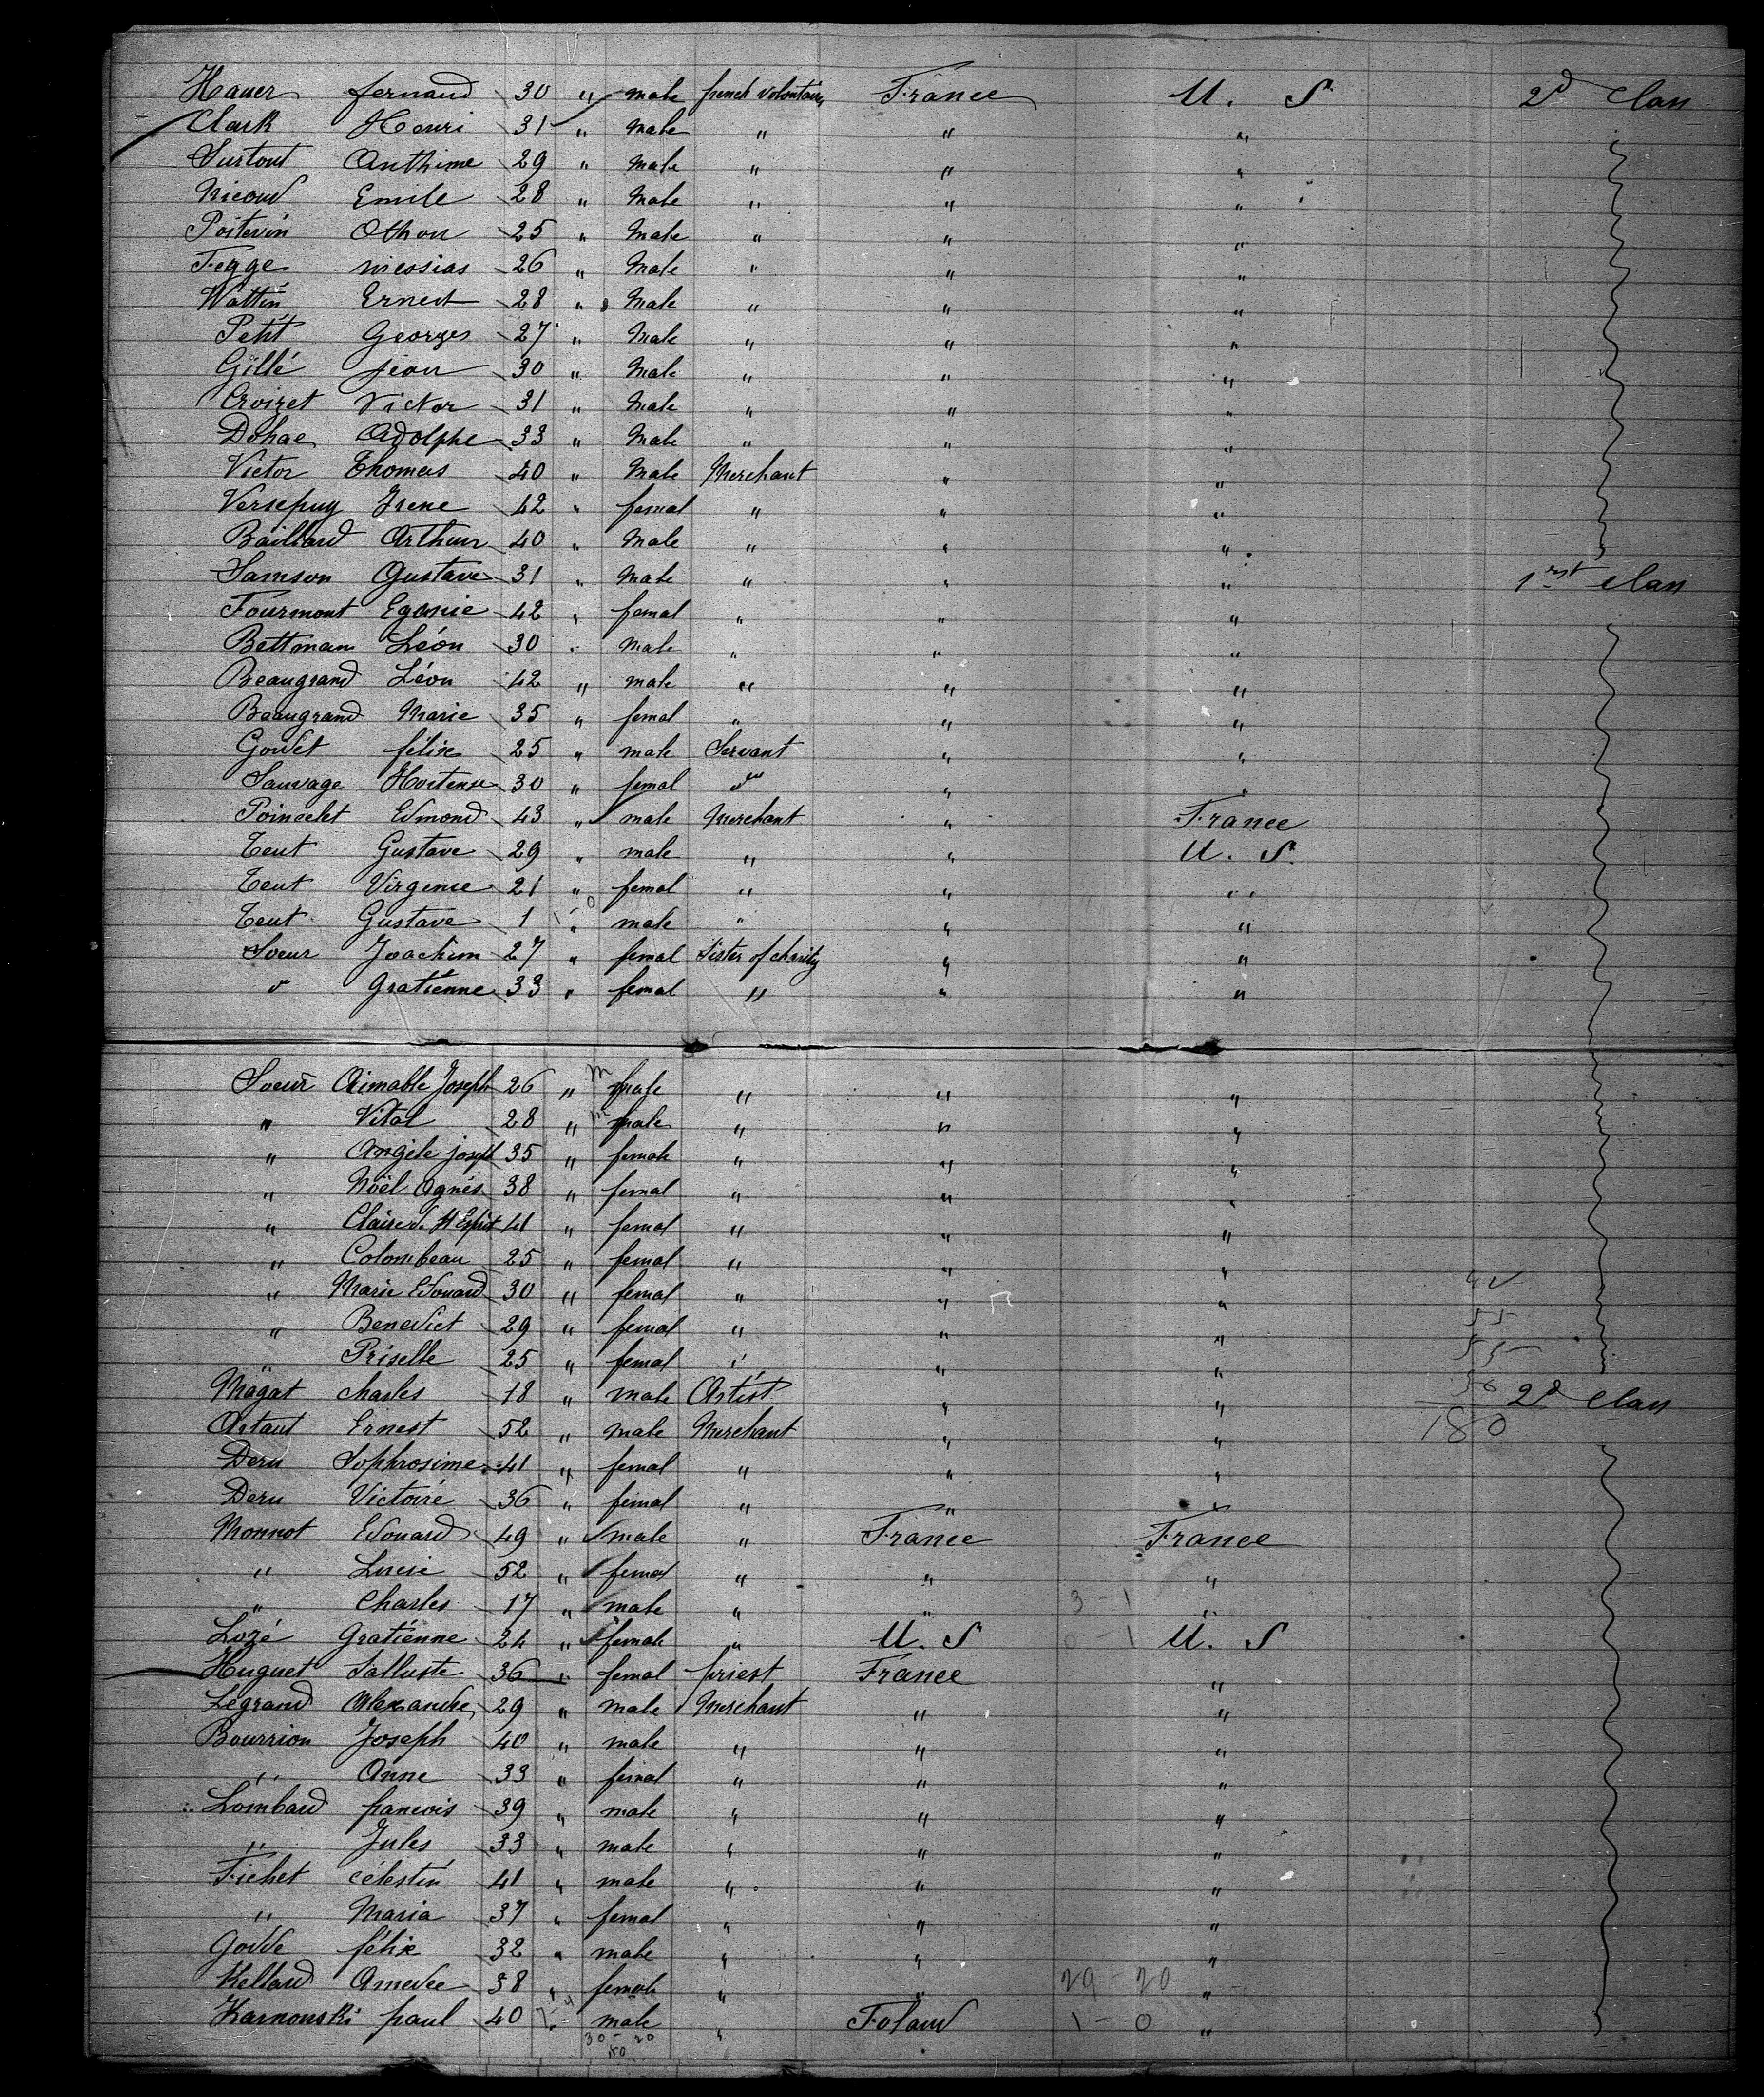 Hauer fernand 30 " male french volontaire France U. S 2d Class
Clark Henri 31 " male " " "
Surtout Anthime 29 " male " " "
Nicoud Emile 28 " Male " " "
Poitevin Othon 25 " Male " " "
Fegge nicosias 26 " Male " " "
Wattin Ernest 28 " Male " " "
Petit Georges 27 " Male " " "
Gillé jean 30 " Male " " "
Croizet Victor 31 " Male " " "
Dohae Adolphe 33 " Male " " "
Victor Thomas 40 " Male Merchant " "
Versepuy Irene 42 " femal " " "
Baillard Arthur 40 " Male " " "
Samson Gustave 31 " Male " " " 1rst Class
Fourmont Eganie 42 " femal " " "
Bettman Léon 30 " Male " " "
Beaugrand Léon 42 " male " " "
Beaugrand Marie 35 " femal " " "
Goudet félix 25 " male Servant " "
Sauvage Hortense 30 " femal " " "
Poincelet Edmond 43 " male Merchant " France
Teut Gustave 29 " male " " U. S.
Teut Virgenie 21 " femal " " "
Teut Gustave 1 " male " " "
Soeur Joachim 27 " femal Sister of charity " "
" Gratienne 33 " femal " " "
Soeur Aimable Joseph 26 " m male " " "
" Vital 28 " m male " " "
" Angèle joseph 35 " female " " "
" Noël Agnés 38 " femal " " "
" Claire d. St Esprit 41 " femal " " "
" Colombeau 25 " femal " " "
" Marie Edouard 30 " femal " " "
" Benedict 29 " femal " " " 55
" Priselle 25 " femal " " "
Magat charles 18 " male Artist " " 2d Class
Artaut Ernest 52 " male Merchant " " 180
Deru Sophrosime 41 " femal " " "
Deru Victoire 36 " femal " " "
Monnot Edouard 49 " male " France France
" Lucie 52 " femal " " "
" Charles 17 " male " " 3 - 1 "
Lozé Gratienne 24 " female " U. S 0 1 U. S
Huguet Salluste 36 " femal priest France "
Legrand Alexandre 29 " male Merchant " "
Bourrion Joseph 40 " male " " "
" Anne 33 " femal " " "
Lombard francois 39 " male " " "
" Jules 33 " male " " "
Fichet célestin 41 " male " " "
" Maria 37 " femal " " "
Godde félix 32 " male " " "
Kellard Amedee 38 " female " " 29 - 20 "
Karnouski paul 40 " male " Poland 1 - 0 "
30 - 20